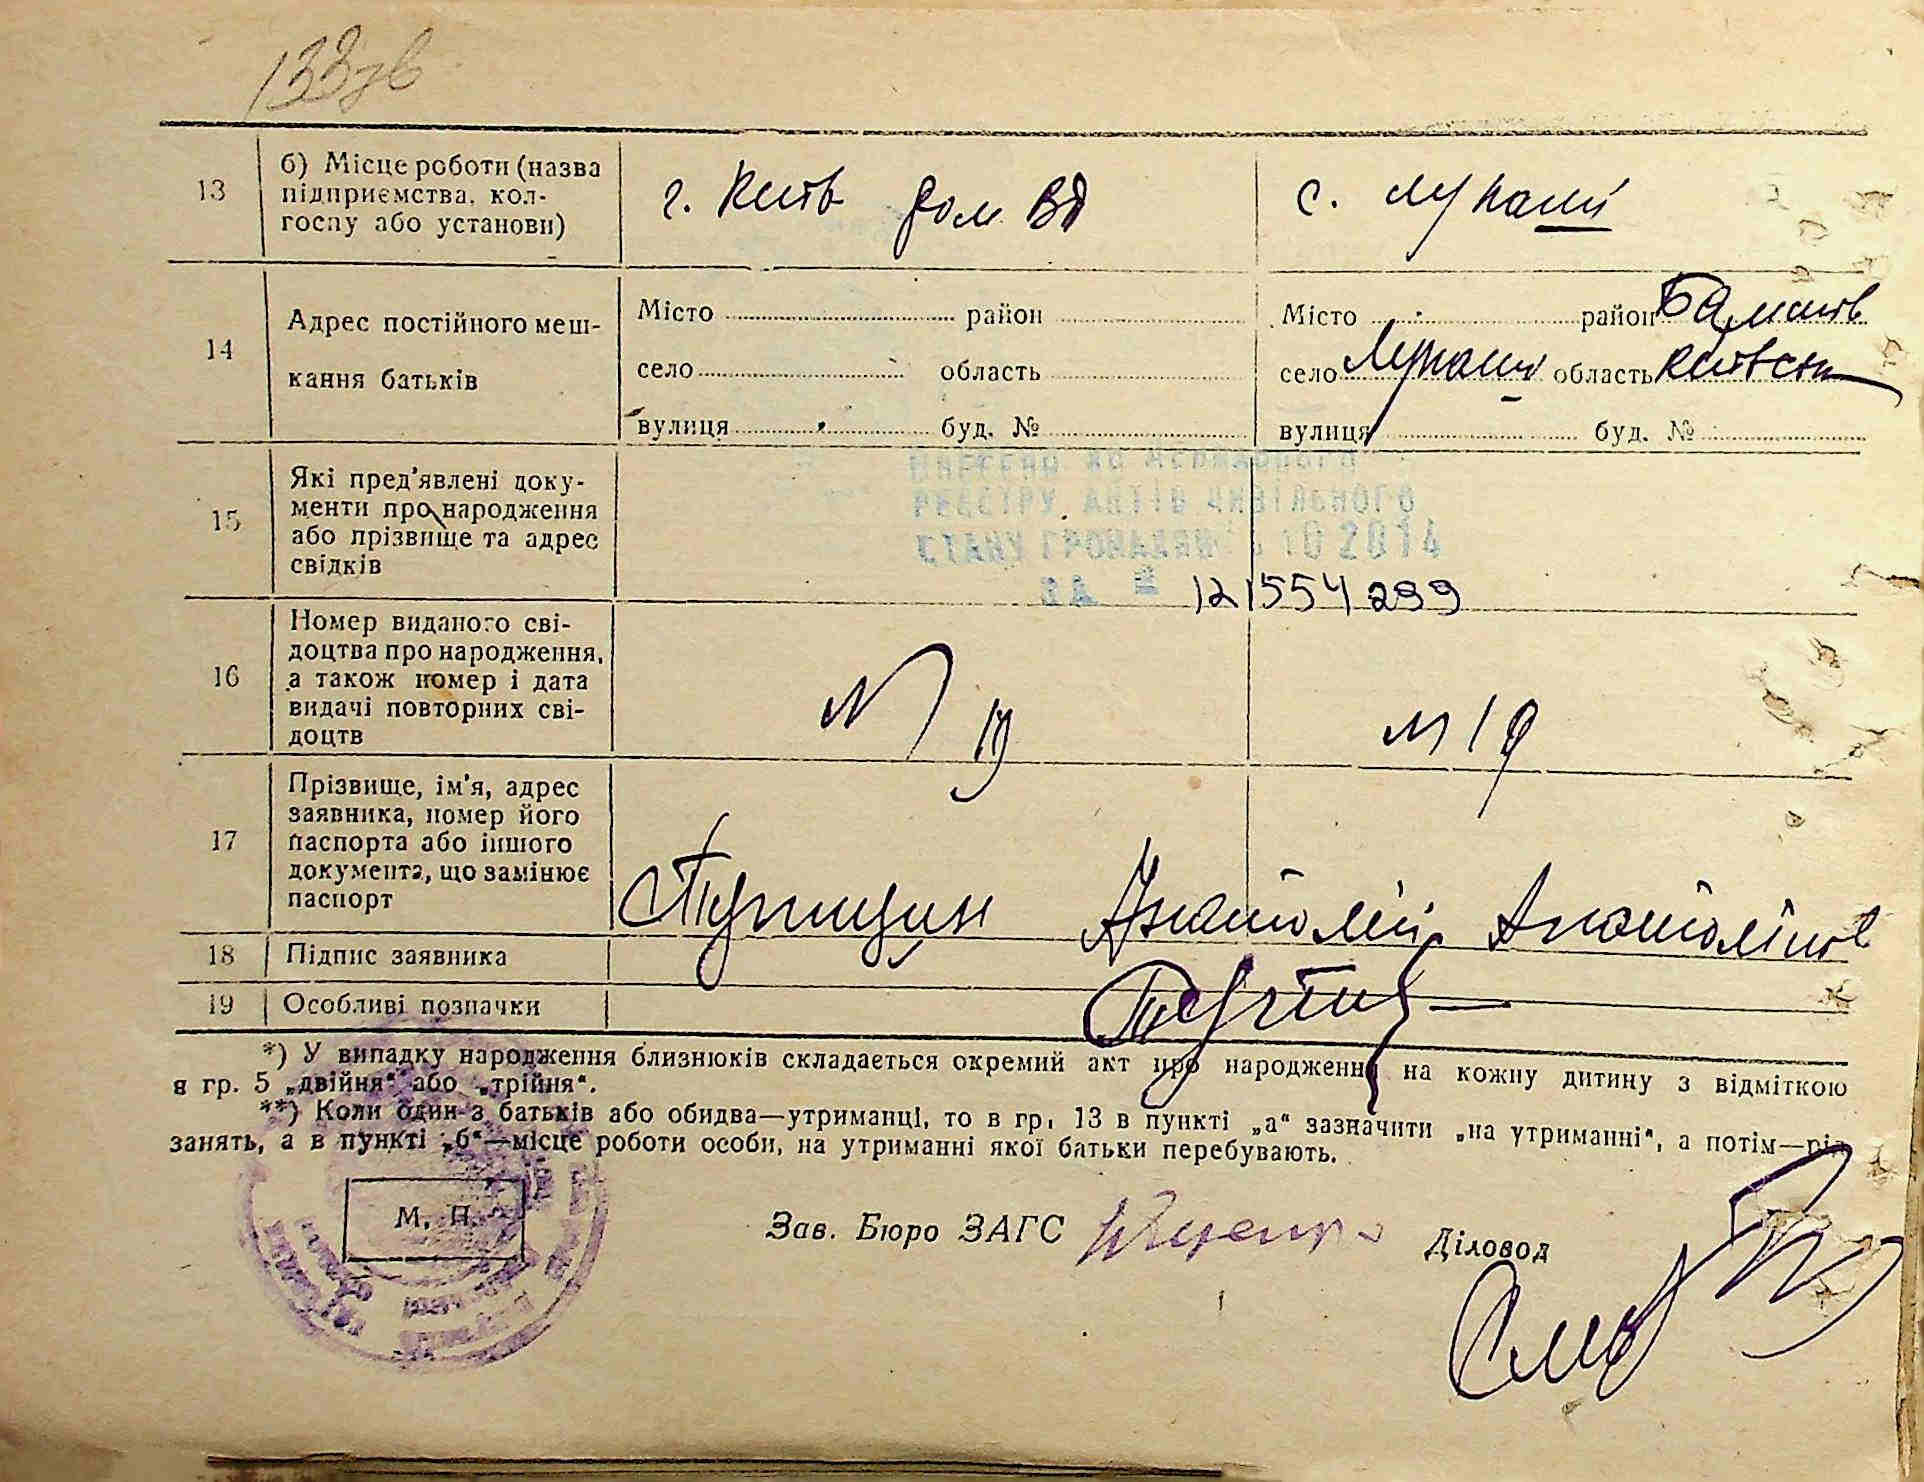 133зв
13 б) Місце роботи (назва
підприємства, кол-
госпу або установи)
г. Київ дом ВД
с. Лукаші
14 Адрес постійного меш-
кання батьків
Місто район
село область
вулиця буд. №
Місто район
село Лукаші область Київськ
вулиця буд. №
15 Які пред'явлені доку-
менти про народження
або прізвище та адрес
свідків
ВНЕСЕНО ДО ДЕРЖАВНОГО
РЕЄСТРУ АКТІВ ЦИВІЛЬНОГО
СТАНУ ГРОМАДЯН 10 2014
ЗА № 121554299
16 Номер виданого сві-
доцтва про народження,
а також номер і дата
видачі повторних сві-
доцтв
N 19
N 19
17 Прізвище, ім'я, адрес
заявника, номер його
паспорта або іншого
документа, що замінює
паспорт
Анатолій Анатолійов
18 Підпис заявника
19 Особливі позначки
*) У випадку народження близнюків складається окремий акт про народження на кожну дитину з відміткою
в гр. 5 „двійня“ або „трійня“.
**) Коли один з батьків або обидва—утриманці, то в гр. 13 в пункті „а“ зазначити „на утриманні“, а потім—рід
занять, а в пункті „б“—місце роботи особи, на утриманні якої батьки перебувають.
М. П.
Зав. Бюро ЗАГС
Діловод